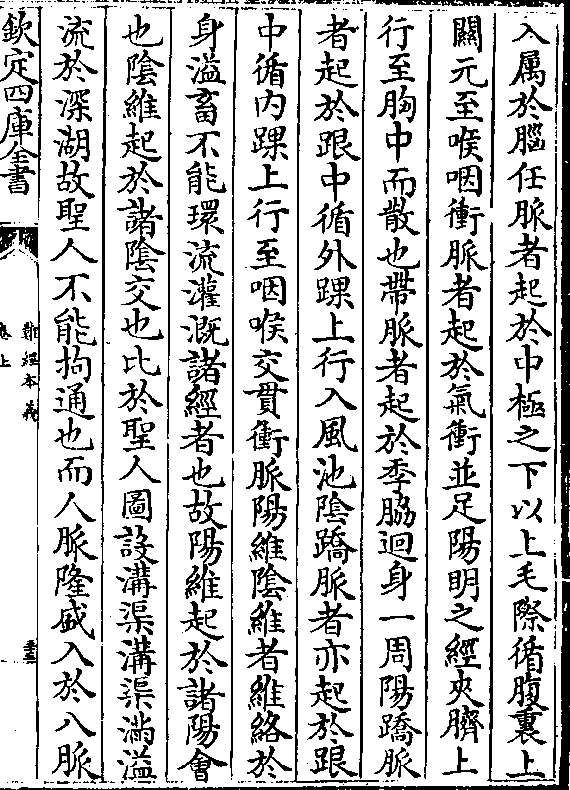 入屬於腦任脈者起於中極之下以上毛際循腹裏上
關元至喉咽衝脈者起於氣衝並足陽明之經夾臍上
行至胸中而散也帶脈者起於季脇迴身一周陽蹻脈
者起於跟中循外踝上行入風池陰蹻脈者亦起於跟
中循内踝上行至咽喉交貫衝脈陽維陰維者維絡於
身溢畜不能環流灌溉諸經者也故陽維起於諸陽會
也陰維起於諸陰交也比於聖人圖設溝渠溝渠滿溢
流於深湖故聖人不能拘通也而人脈隆盛入於八脈
欽定四庫全書
難經本義
卷上